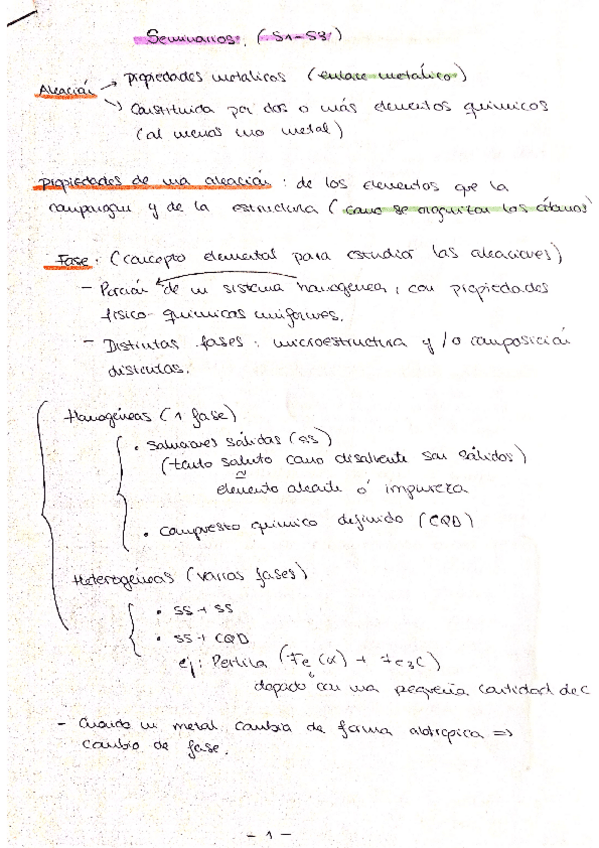 Seminarios: (S1-S3)
Aleación → propiedades metálicas (enlace metálico)
↘ Constituida por dos o más elementos químicos
(al menos uno metal)
Propiedades de una aleación: de los elementos que la
compongan y de la estructura (como se organizan los átomos)
Fase: (concepto elemental para estudiar las aleaciones)
- Porción de un sistema homogénea, con propiedades
físico-químicas uniformes.
- Distintas fases: microestructura y/o composición
distintas.
Homogéneas (1 fase)
• Soluciones sólidas (SS)
(tanto soluto como disolvente son sólidos)
elemento aleante ó impureza
• Compuesto químico definido (CQD)
Heterogéneas (varias fases)
• SS + SS
• SS + CQD
ej: Perlita (Fe (α) + Fe3C)
dopado con una pequeña cantidad de C
- Cuando un metal cambia de forma alotrópica =>
cambio de fase.
- 1 -